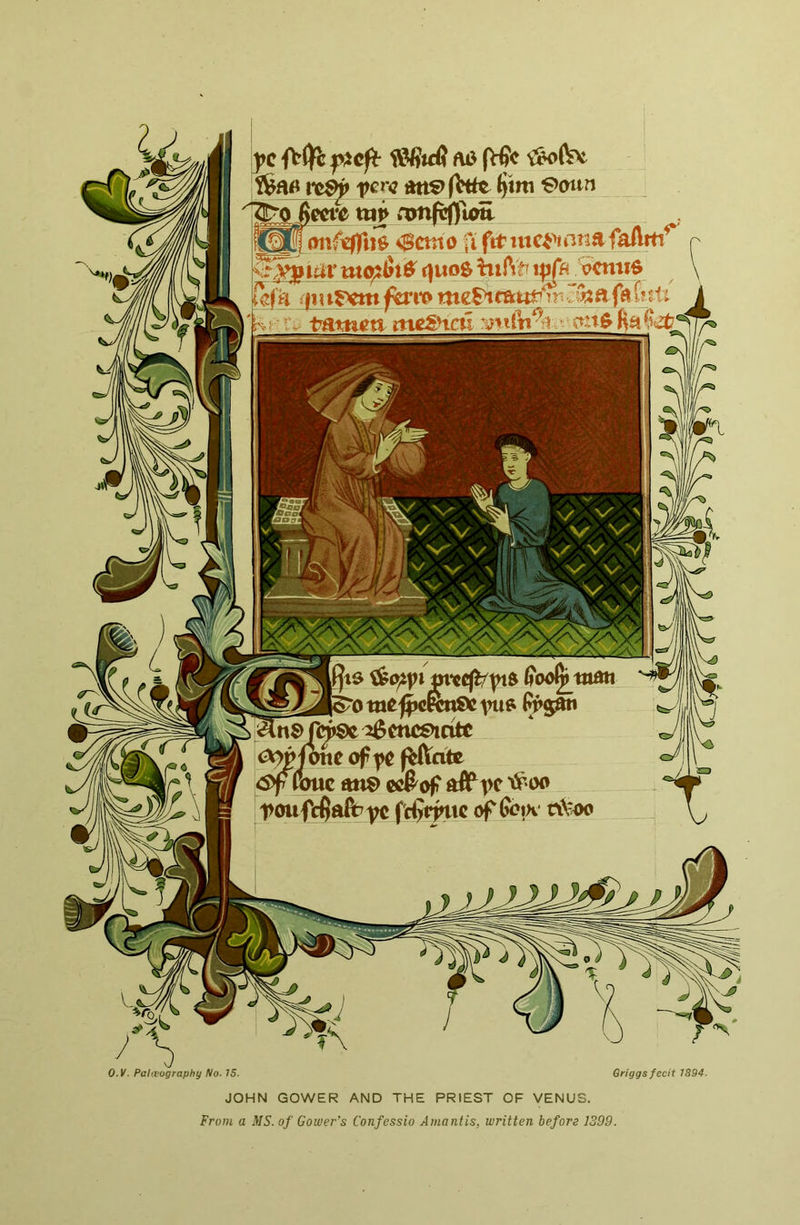 þe selfe prest Which as sche wolde
Was redy þere and sette him doun
To heere my confessioun
Confessus Genio si sit medicina salutis
Experiar morbis quos tulit ipsa venus
Lesa quidem ferro medicantur membra saluti
tamen medicum vulnus habet
This worþi preest þis hooly man
To me spekende þus bygan
And seyde Benedicite
My sone of þe felicite
Of loue and eek of all þe woo
þou schalt þe schryue of boþe twoo
O.V. Palæography No. 15.
Griggs fecit 1894.
JOHN GOWER AND THE PRIEST OF VENUS.
From a MS. of Gower's Confessio Amantis, written before 1399.